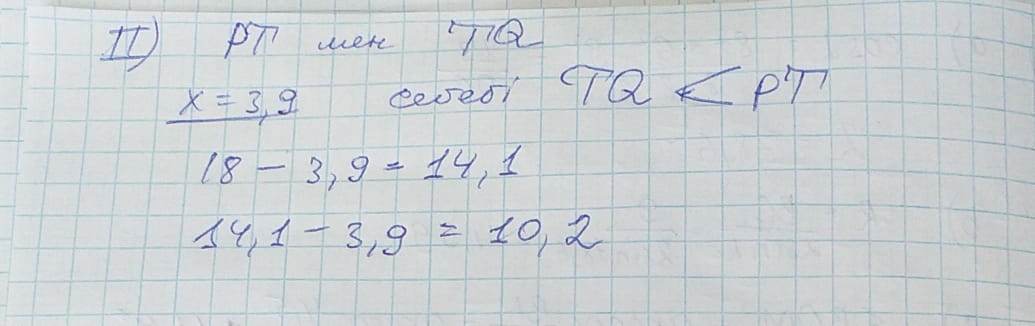 II) PT мен TQ
x = 3,9 себебі TQ < PT
18 - 3,9 = 14,1
14,1 - 3,9 = 10,2